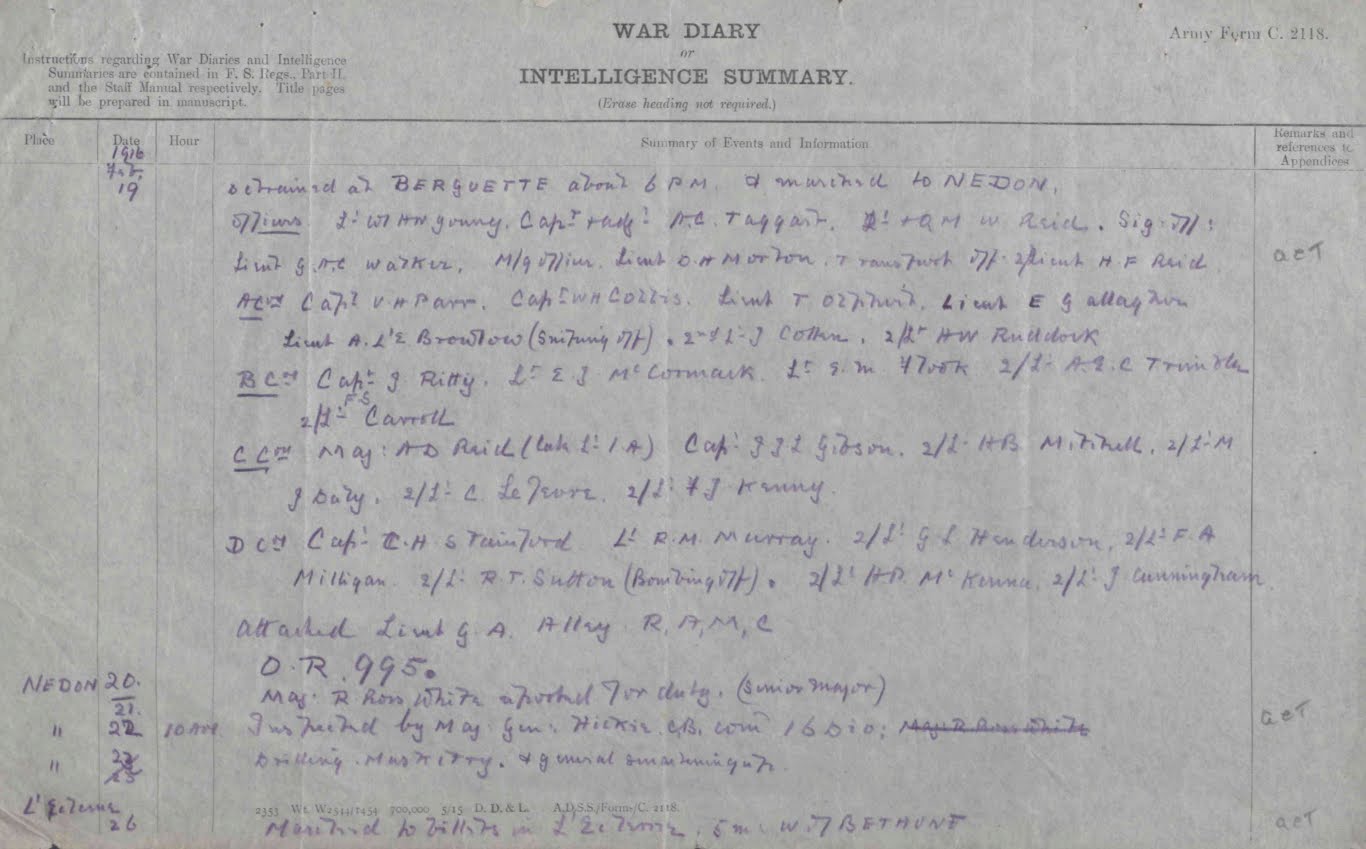 WAR DIARY
or
INTELLIGENCE SUMMARY.
(Erase heading not required.)
Army Form C. 2118.
Instructions regarding War Diaries and Intelligence
Summaries are contained in F. S. Regs., Part II.
and the Staff Manual respectively. Title pages
will be prepared in manuscript.
Place Date Hour Summary of Events and Information Remarks and references to Appendices
1916
Feb.
19 Detrained at BERGUETTE about 6 P.M. & marched to NEDON.
Officers Lt Young, Capt & adjt A.C. Taggart. Lt & QM W. Reid. Sig: off:
Lieut G.A.C Walker, M/g officer. Lieut D.H Morton. Transport off. 2/Lieut H.F Reid acT
A Coy Capt V.H Parr. Capt W H Collis. Lieut T Lieut E Gallagher
Lieut A. L'E Brownlow (Sniping off). 2nd Lt J Cotter. 2/Lt HW Ruddock
B Coy Capt J Ritty. Lt E J McCormack. Lt E.M Flook 2/Lt A.E.C Trimble
2/Lt F.S Carroll
C Coy Maj: AD Reid (late Lt I.A) Capt J J L Gibson. 2/Lt HB Mitchell. 2/Lt M
J Daly. 2/Lt C Le Fevre. 2/Lt F J Kenny.
D Coy Capt C.H Stainford Lt R.M. Murray. 2/Lt G L Henderson, 2/Lt F.A
Milligan. 2/Lt R.T. Sutton (Bombing off). 2/Lt HP. McKenna. 2/Lt J Cunningham
Attached Lieut G.A. Alley R,A,M,C
O.R. 995.
NEDON 20. Maj. R Ross White reported for duty. (Senior Major)
21.
" 22 10 AM Inspected by Maj. Gen: Hickie C.B. com 16 Div; Maj R Ross White acT
" 23 Drilling. Musketry. & general smartening up.
25
L'Ecleme
2353 Wt. W2544/1454 700,000 5/15 D. D. & L. A.D.S.S./Forms/C. 2118.
26 Marched to billets in L'Ecleme. 5 m. W of BETHUNE acT